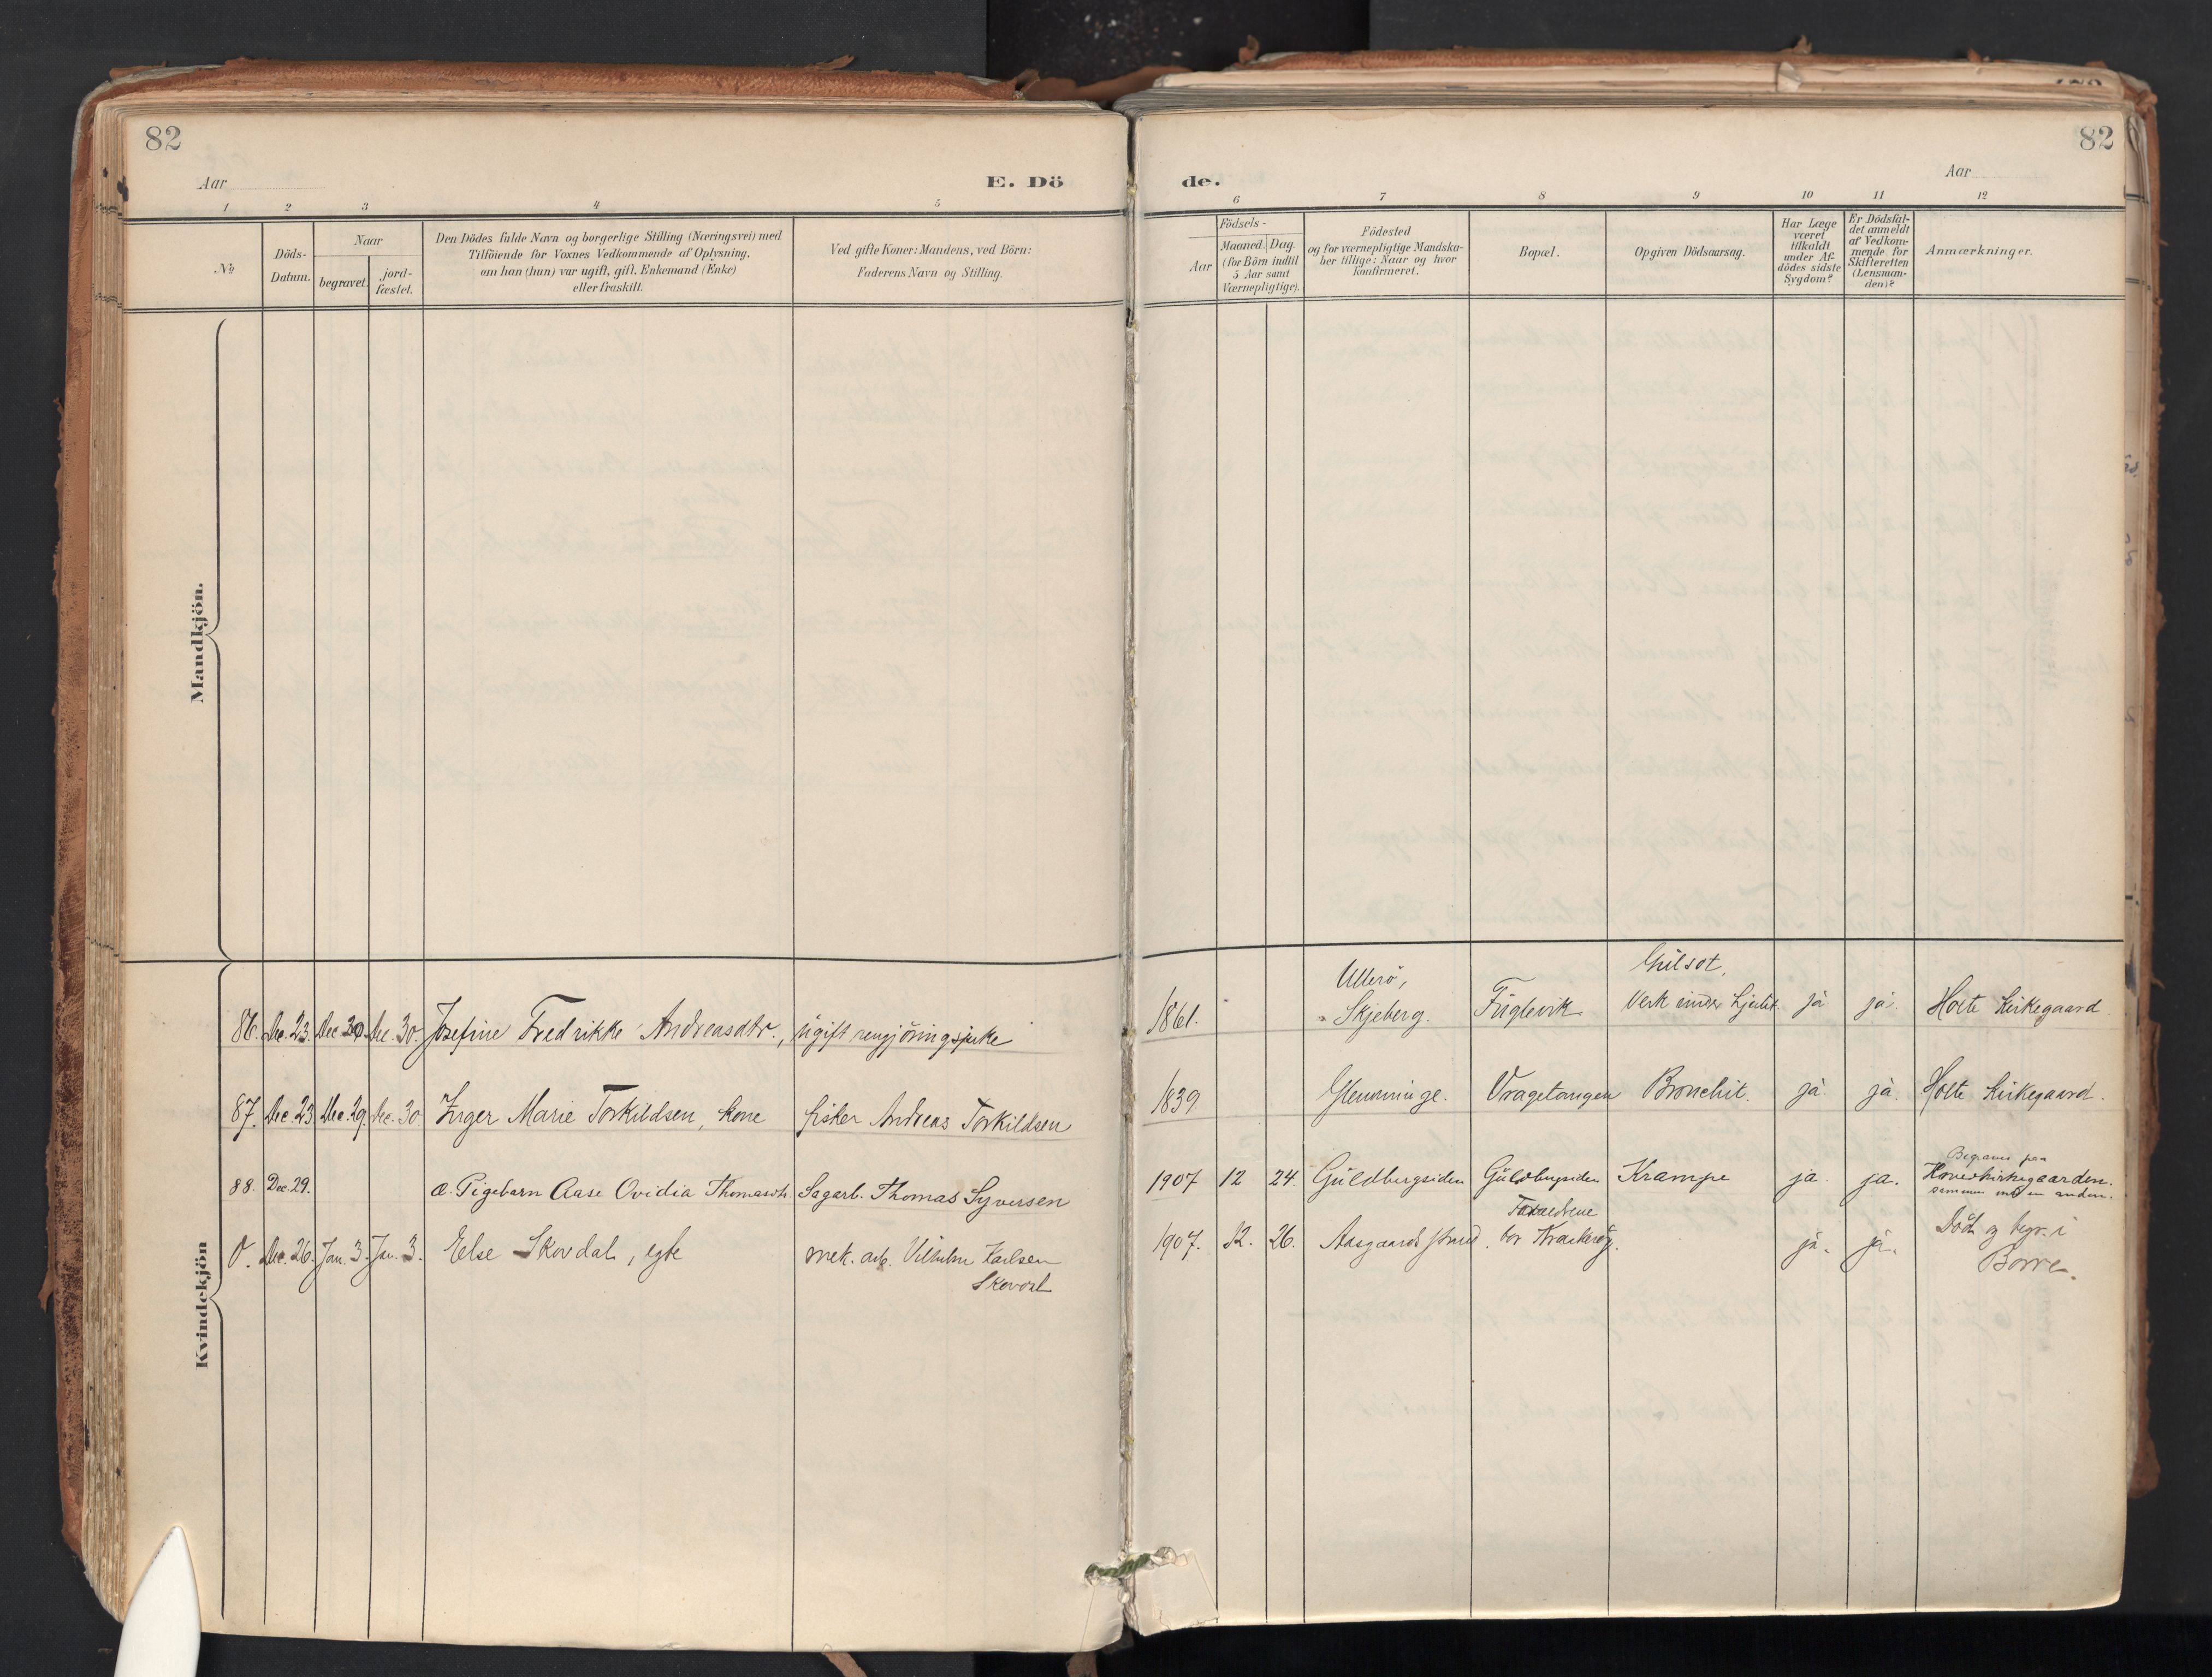 82
Aar
E. Dö
1 2 3 4 5
No
Döds-
Datum.
Naar
begravet.
jord-
fæstet.
Den Dödes fulde Navn og borgerlige Stilling (Næringsvei) med
Tilföiende for Voxnes Vedkommende af Oplysning,
om han (hun) var ugift, gift, Enkemand (Enke)
eller fraskilt.
Ved gifte Koner: Mandens, ved Börn:
Faderens Navn og Stilling.
Mandkjön.
Kvindekjön
86. Dec. 23. Dec 30. Dec. 30. Josefine Fredrikke Andreasdtr., ugift rengjöringspike
87. Dec. 23 Dec. 29. Dec. 30 Inger Marie Torkildsen, kone fisker Andreas Torkildsen
88. Dec. 29. d. Pigebarn Aase Ovidia Thomasdtr. Sagarb. Thomas Syversen
0. Dec. 26. Jan. 3. Jan. 3. Else Skovdal, egte mek. arb. Vilhelm Karlsen
Skovdal
82
de.
Aar
6 7 8 9 10 11 12
Aar
Födsels-
Maaned. Dag.
(for Börn indtil
5 Aar samt
Værnepligtige).
Födested
og for værnepligtige Mandska-
ber tillige: Naar og hvor
konfirmeret.
Bopæl.
Opgiven Dödsaarsag.
Har Læge
været
tilkaldt
under Af-
dödes sidste
Sygdom?
Er Dödsfal-
det anmeldt
af Vedkom-
mende for
Skifteretten
(Lensman-
den)?
Anmærkninger.
Ullerö, Gulsot.
1861. Skjeberg. Fuglevik Verk under hjertet ja ja. Holte Kirkegaard
1839. Glemminge. Vragetangen Bronchit. ja. ja. Holte Kirkegaard.
Begraves paa
1907 12 24. Guldbergsiden Guldbergsiden Krampe ja ja. Hovedkirkegaarden.
sammen med en anden.
Forældrene
1907. 12. 26. Aasgaardstrand. bor Krakeröy. ja. ja. Död og begr. i
Borre.